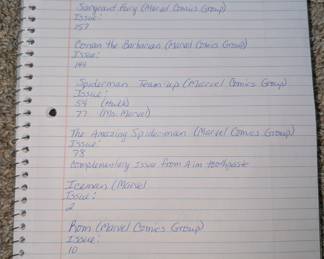 Sargeant Fury (Marvel Comics Group)
Issue:
157
Conan the Barbarian (Marvel Comics Group)
Issue:
144
Spiderman Team-up (Marvel Comics Group)
Issue:
54 (Hulk)
77 (Ms. Marvel)
The Amazing Spider-man (Marvel Comics Group)
Issue:
78
Complementary Issue from Aim toothpaste
Iceman (Marvel
Issue:
2
Rom (Marvel Comics Group)
Issue:
10